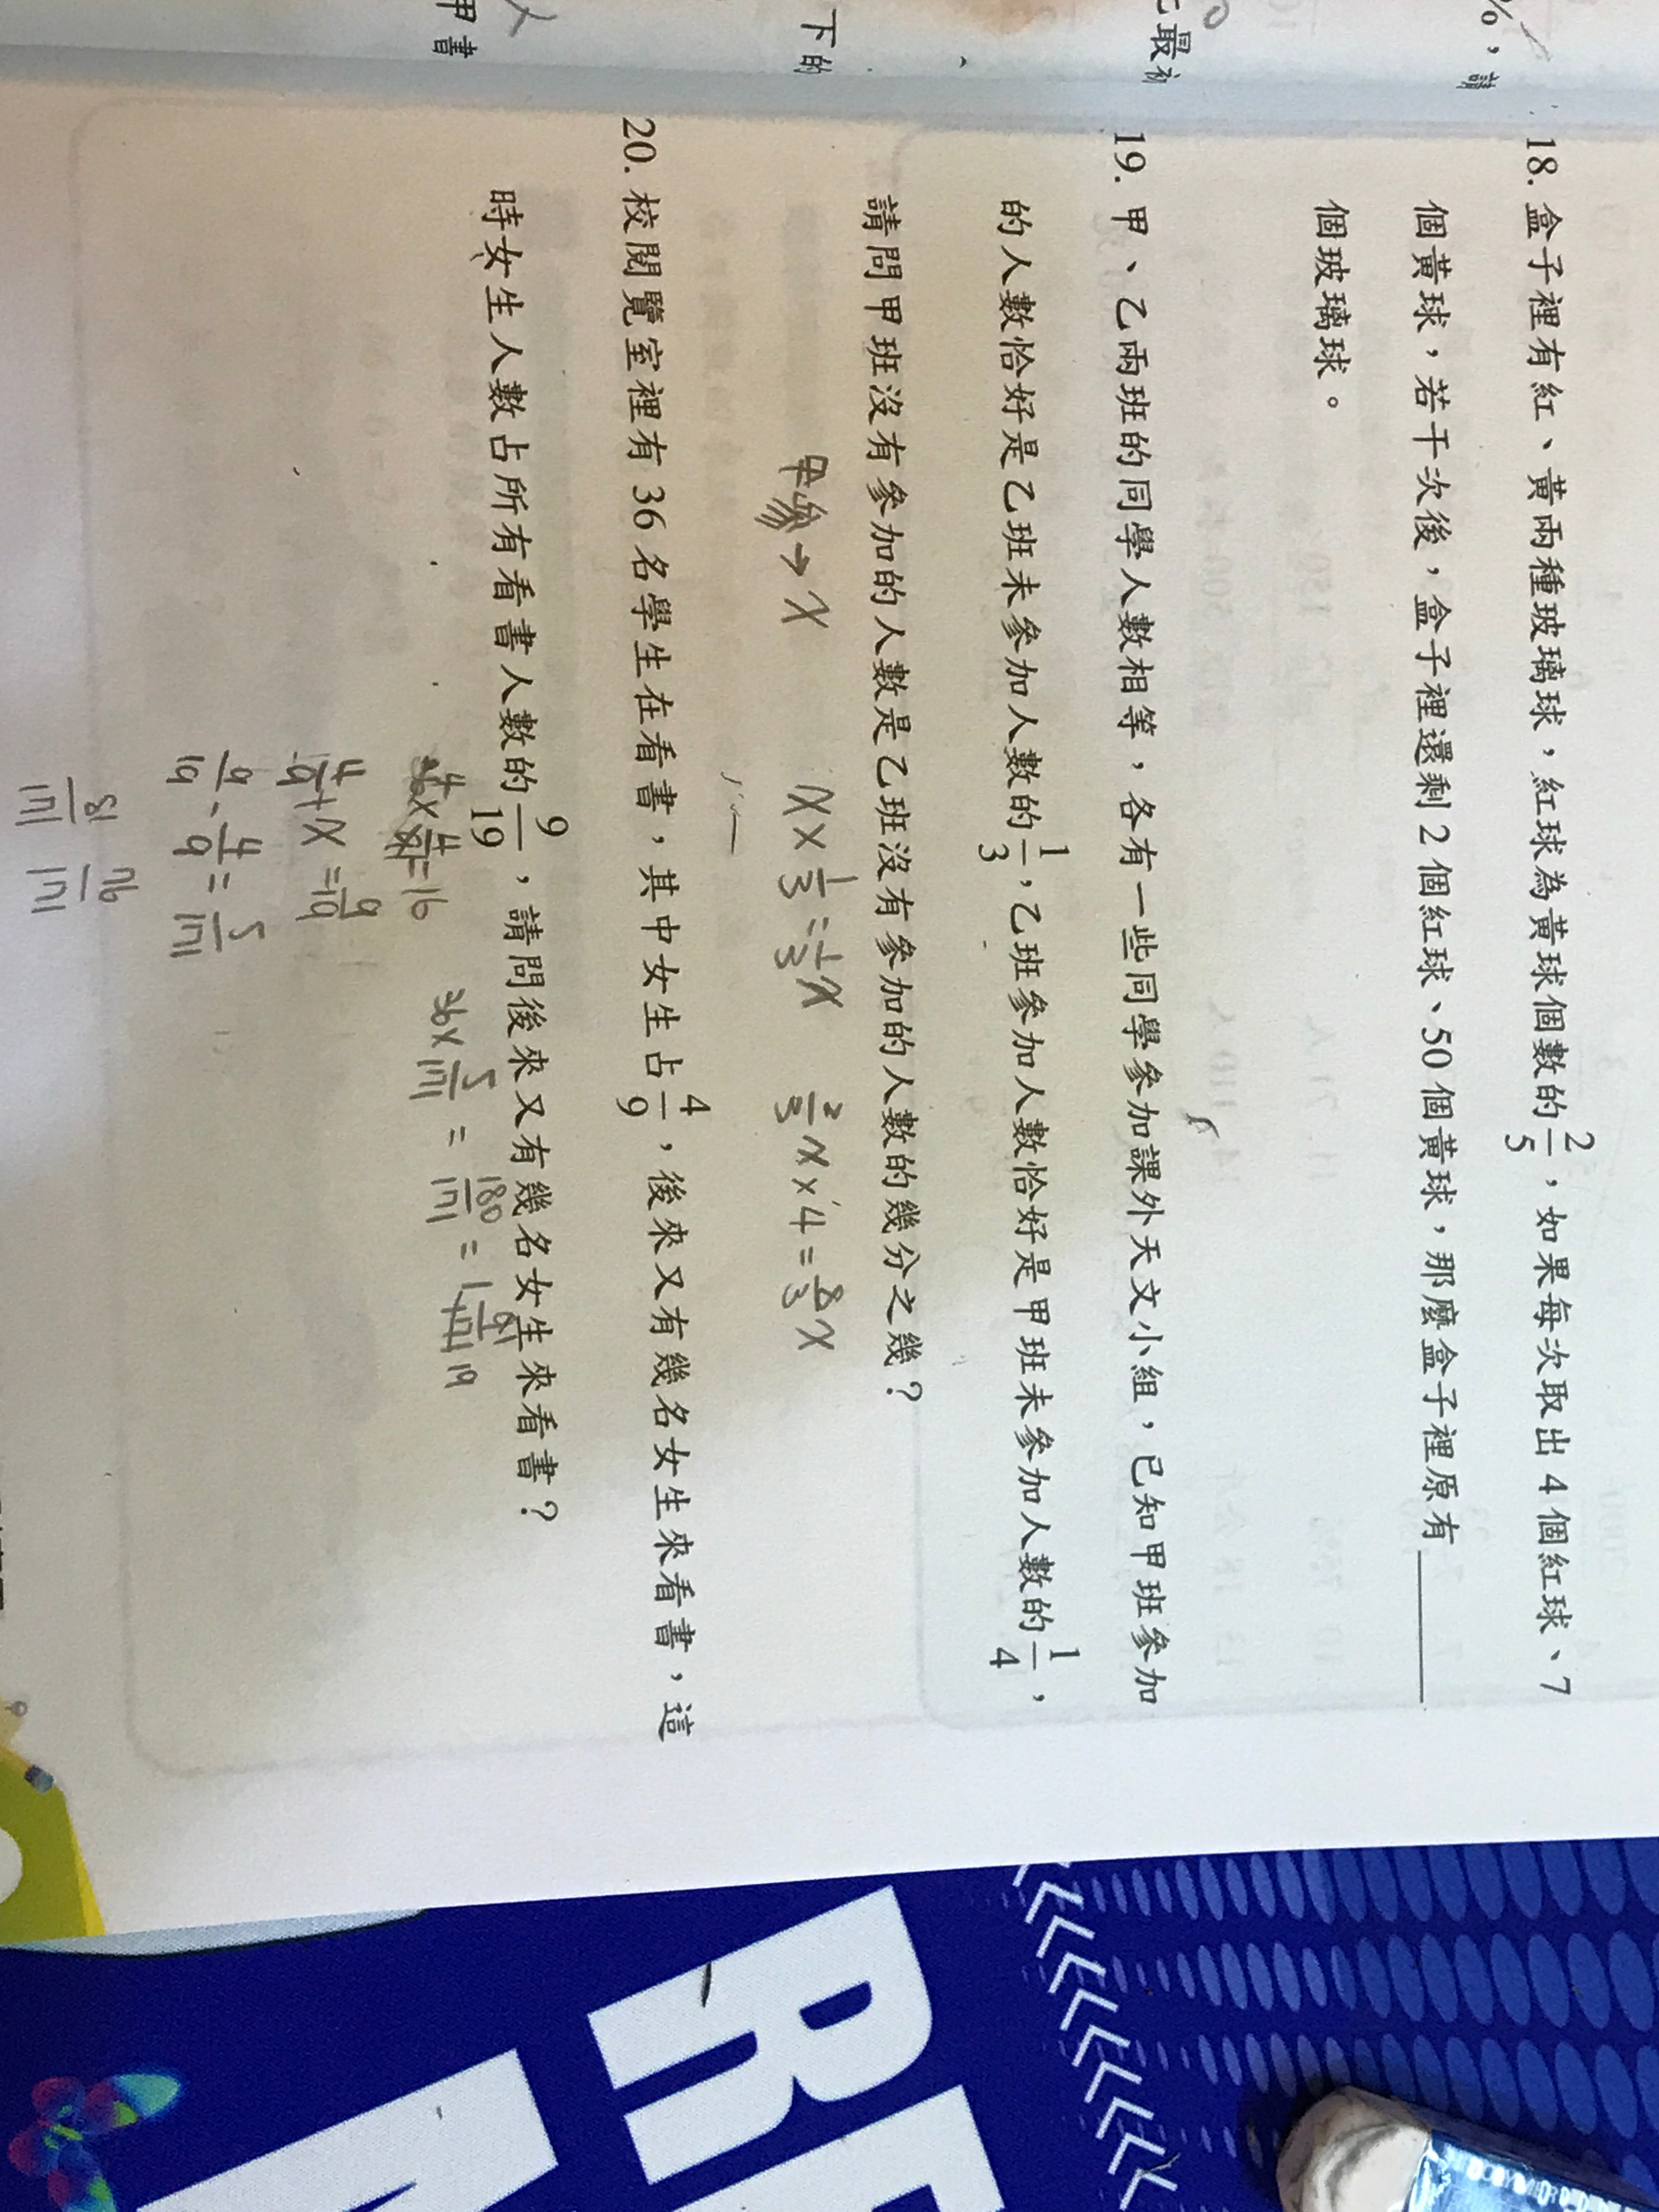 %，請
最初
下的
甲書
18. 盒子裡有紅、黃兩種玻璃球，紅球為黃球個數的2/5，如果每次取出4個紅球、7
個黃球，若干次後，盒子裡還剩2個紅球、50個黃球，那麼盒子裡原有______
個玻璃球。
19. 甲、乙兩班的同學人數相等，各有一些同學參加課外天文小組，已知甲班參加
的人數恰好是乙班未參加人數的1/3，乙班參加人數恰好是甲班未參加人數的1/4，
請問甲班沒有參加的人數是乙班沒有參加的人數的幾分之幾？
→ x x×1/3=1/3x 2/3x×4=8/3x
20. 校閱覽室裡有36名學生在看書，其中女生占4/9，後來又有幾名女生來看書，這
時女生人數占所有看書人數的9/19，請問後來又有幾名女生來看書？
=16 36×5/171=180/171=1
4/9+x=9/19
9/19-4/9=5/171
81/171 76/171
RE